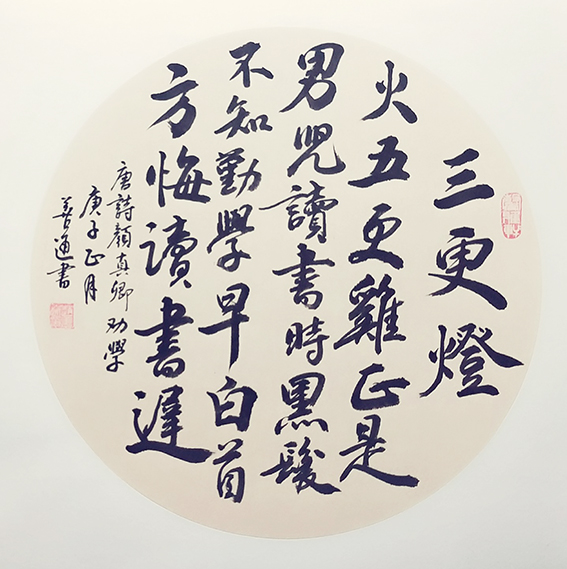 三更燈
火五更雞正是
男兒讀書時黑髮
不知勤學早白首
方悔讀書遲
唐詩顏真卿勸學
庚子正月
善通書